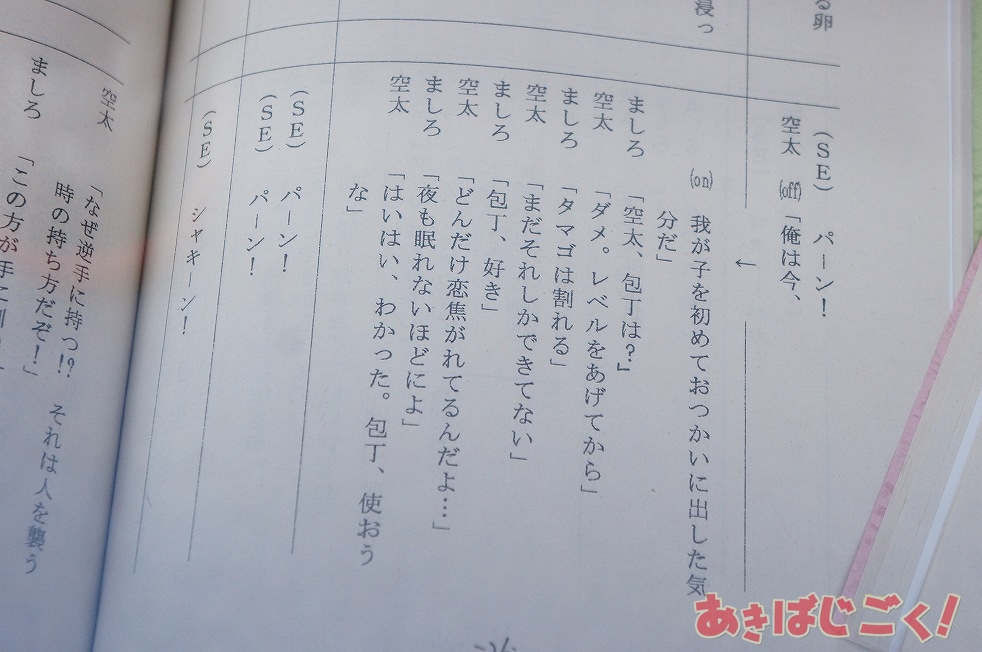 る卵
浸っ
(SE) パーン!
空太 (off)「俺は今、
←
(on) 我が子を初めておつかいに出した気
分だ」
ましろ 「空太、包丁は?」
空太 「ダメ。レベルをあげてから」
ましろ 「タマゴは割れる」
空太 「まだそれしかできてない」
ましろ 「包丁、好き」
空太 「どんだけ恋焦がれてるんだよ…」
ましろ 「夜も眠れないほどによ」
空太 「はいはい、わかった。包丁、使おう
な」
(SE) パーン!
(SE) パーン!
(SE) シャキーン!
空太 「なぜ逆手に持つ!? それは人を襲う
時の持ち方だぞ!」
ましろ 「この方が手に
あきばじごく!